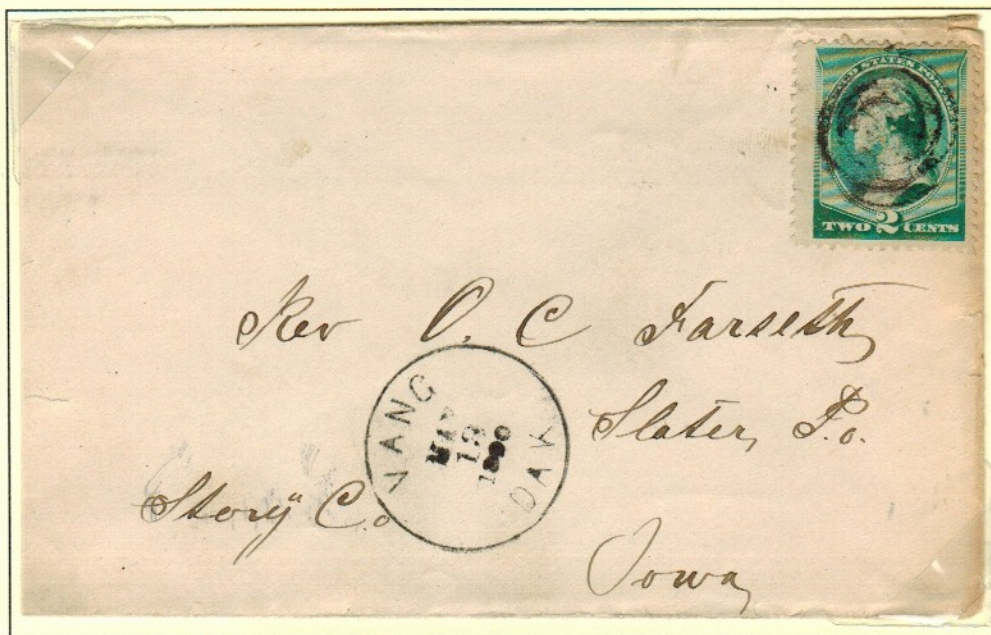 UNITED STATES POSTAGE
TWO 2 CENTS
Rev O. C Farseth
Slater, P.o.
Story Co
Iowa
VANG
19
DAK